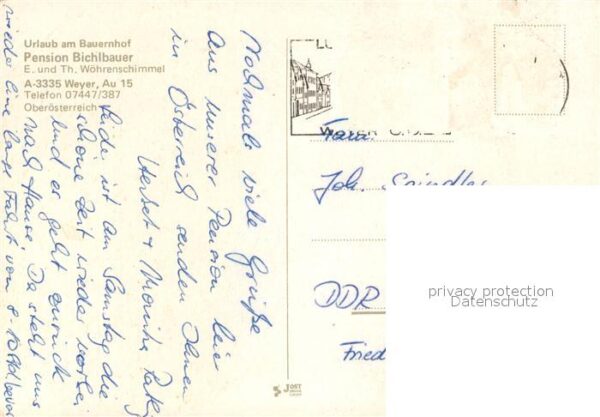 Urlaub am Bauernhof
Pension Bichlbauer
E. und Th. Wöhrenschimmel
A-3335 Weyer, Au 15
Telefon 07447/387
Oberösterreich
Nochmals viele Grüße
aus unserer Pension hier
in Österreich senden Ihnen
Herbert + Monika
Leide ist am Samstag die
schöne Zeit wieder vorbei
und es geht zurück
nach Hause. Da steht uns
wieder eine lange Fahrt von 8
bevor
Joh. Spindler
DDR
Fried
privacy protection
Datenschutz
JOST